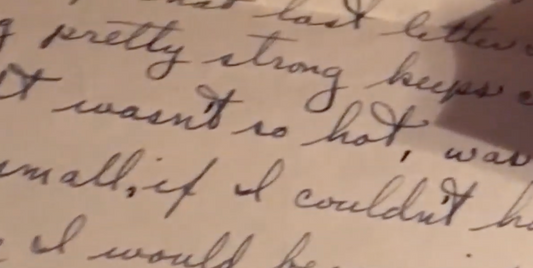 that last letter
pretty strong keeps
it wasn't so hot, was
small, if I couldn't
I would be